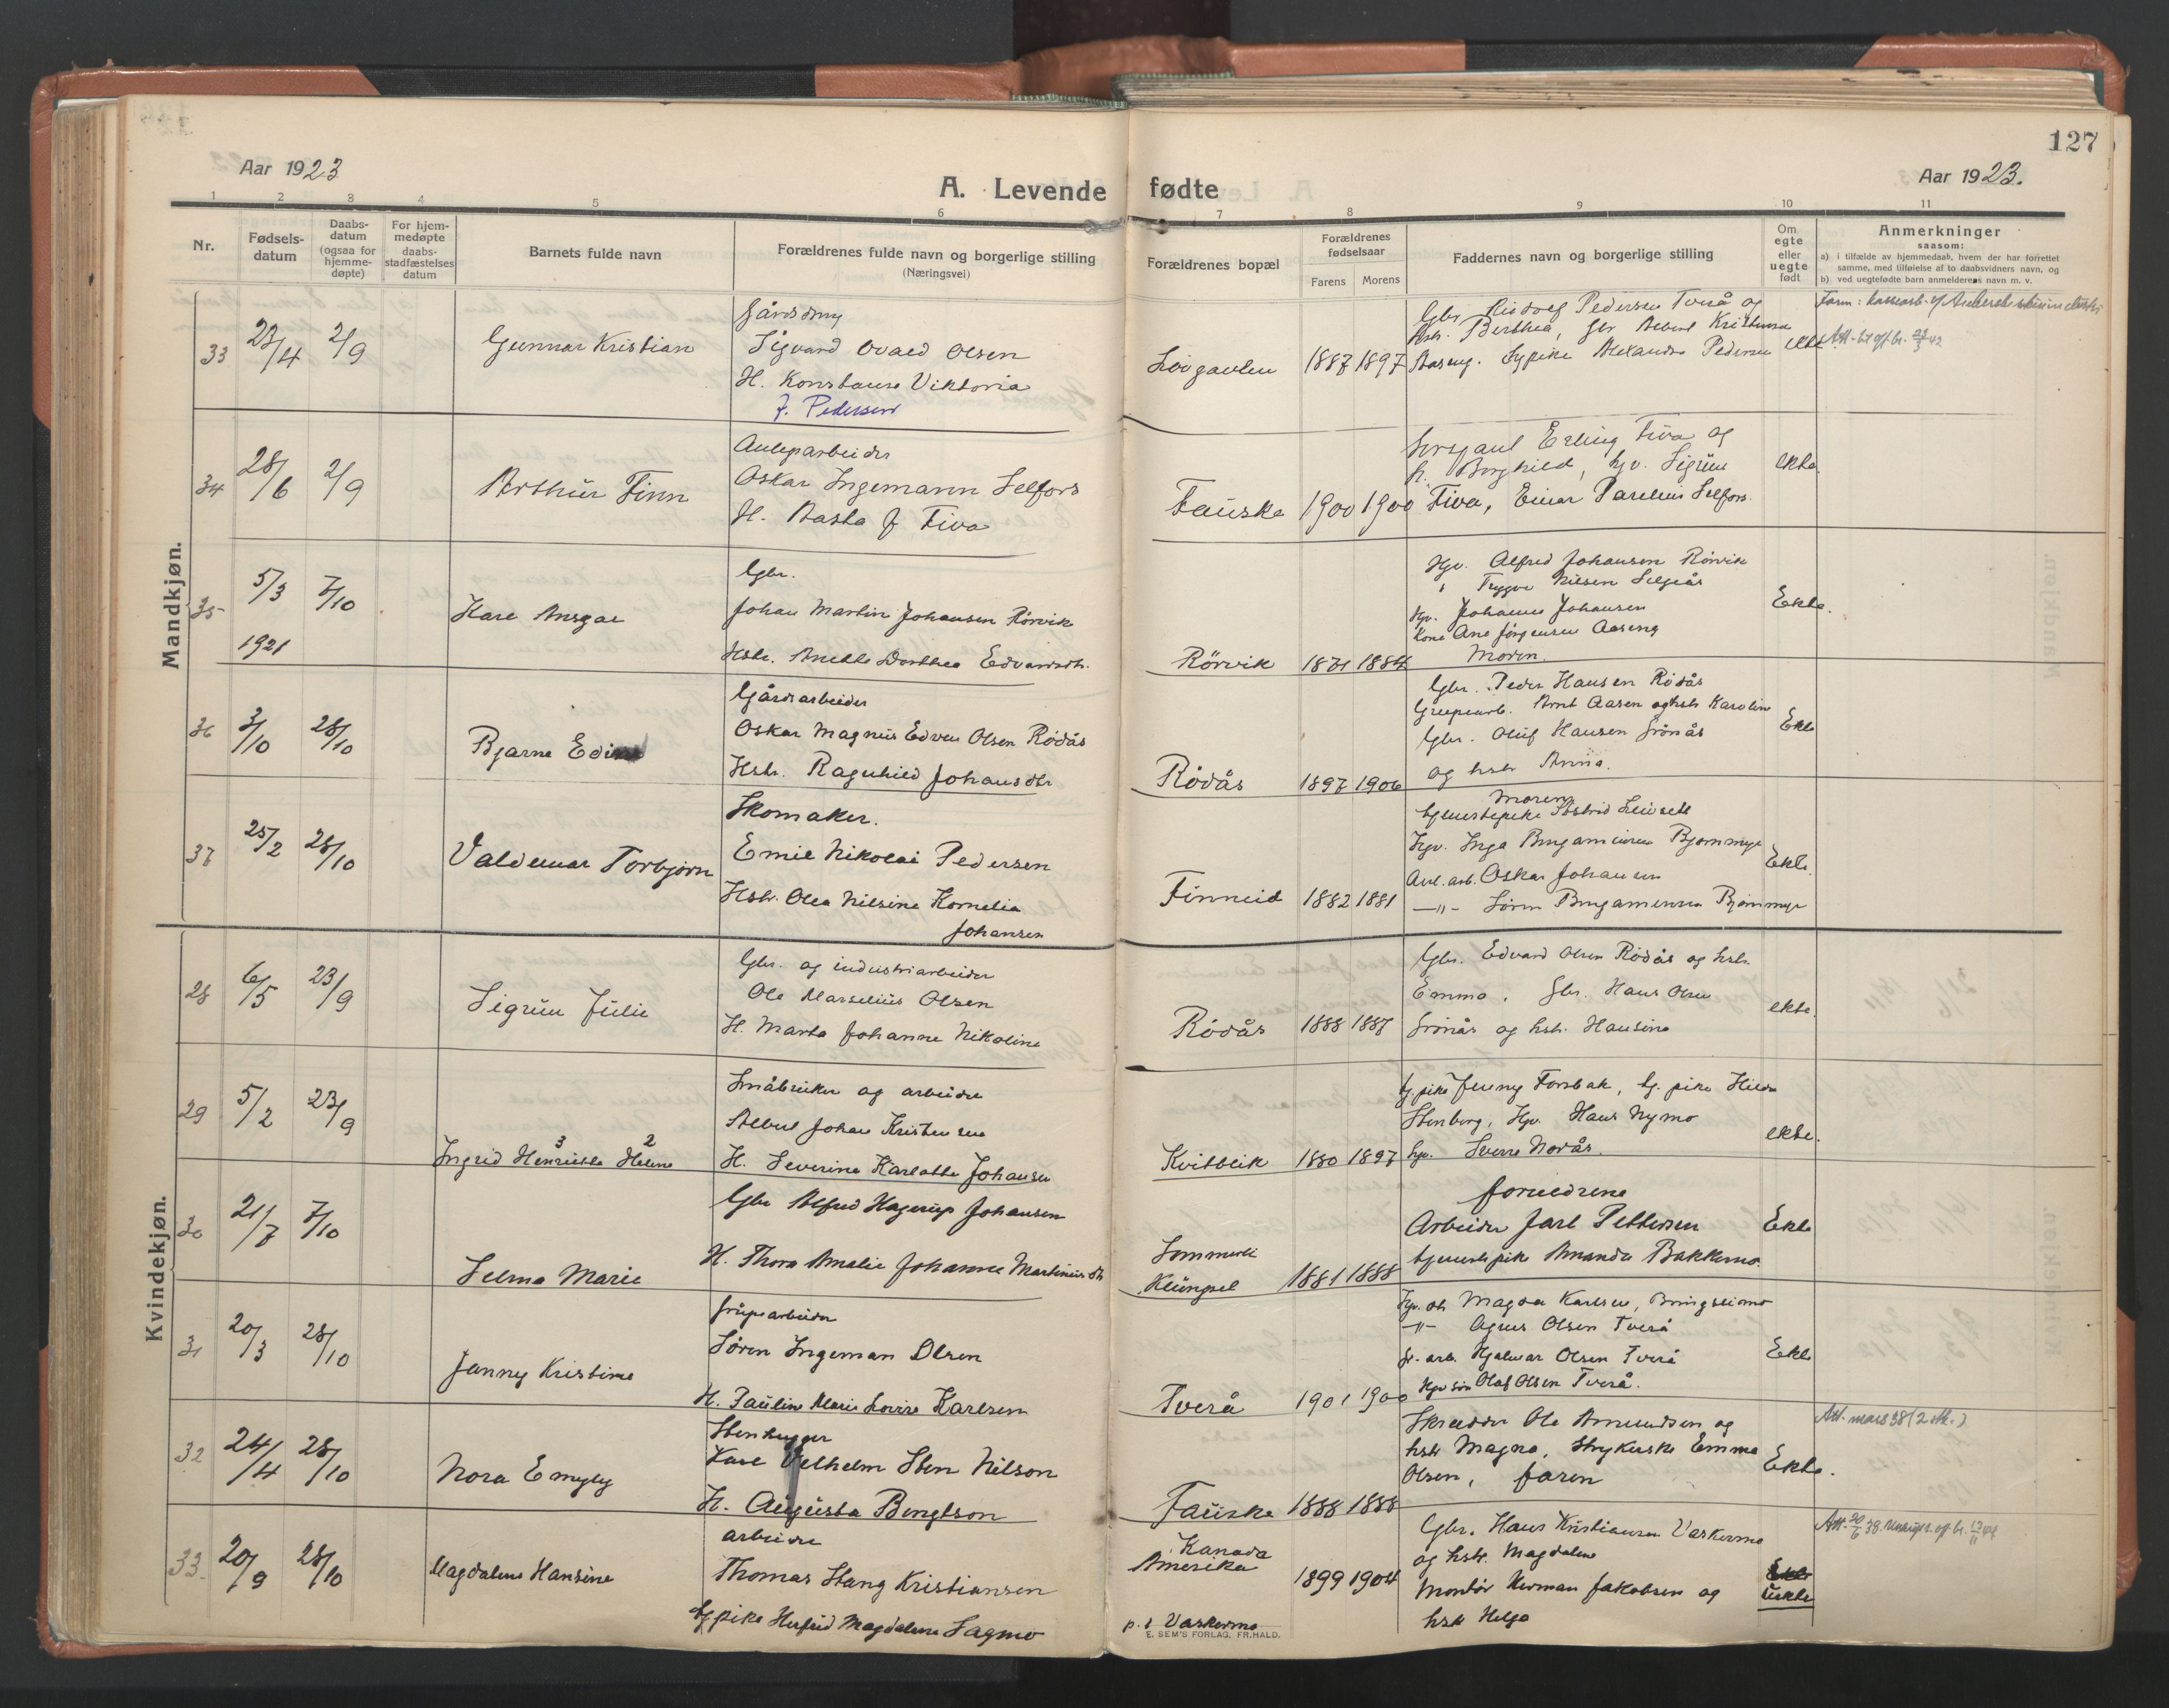 127
Aar 1923
Aar 1923.
A. Levende fødte
1 2 3 4 5 6 7 8 9 10 11
Nr.
Fødsels-
datum
Daabs-
datum
(ogsaa for
hjemme-
døpte)
For hjem-
medøpte
daabs-
stadfæstelses
datum
Barnets fulde navn
Forældrenes fulde navn og borgerlige stilling
(Næringsvei)
Forældrenes bopæl
Forældrenes
fødselsaar
Farens Morens
Faddernes navn og borgerlige stilling
Om
egte
eller
uegte
født
Anmerkninger
saasom:
a) i tilfælde av hjemmedaab, hvem der har forrettet
samme, med tilføielse af to daabsvidners navn, og
b) ved uegtefødte barn anmelderens navn m. v.
Mandkjøn.
33 23/4 2/9 Gunnar Kristian
Sigvard Ovald Olsen
H. Konstanse Viktoria
f. Pedersen
1887 1897
Gbr. Pedersen Tverå og
hstr. Berthea, Gbr Kristensen
Alexandra Pedersen
ekte
34 28/6 2/9 Arthur Finn
Oskar Ingemann Selfors
H. Aasta f Fiva
Fauske 1900 1900
Erling Fiva og
fr. Borghild, hv. Sigrun
Fiva, Einar Parelius Selfors.
ekte.
35 5/3 7/10
1921
Kare Ansgar
Gbr.
Johan Martin Johansen Rörvik
Hstr. Anette Dorthea Edvardsdt.
Rörvik 1871 1884
Hgv. Alfred Johansen Rörvik
" Trygve Nilsen
Hgv. Johannes Johansen
Kone Ane Jörgensen Aaseng
Moren.
Ekte.
36 3/10 28/10 Bjarne
Gårdsarbeider
Oskar Magnus Edvin Olsen Rödås
Hstr. Ragnhild Johansdtr
Rödås 1897 1906
Gbr. Peder Hansen Rödås
Arnt Aasen og hstr Karoline
Gbr. Oluf Hansen Grönås
og hstr Anna.
Ekte
37 25/2 28/10 Valdemar Torbjørn
Skomaker.
Emil Nikolai Pedersen
Hstr. Olea Nilsine Kornelia
Johansen
Finneid 1882 1881
Moren
Tjenestepike Astrid
Hgv. Inga Bjornmyr
Anl. arb. Oskar Johansen
—"— Sören Bjornmyr
Ekte.
Kvindekjøn.
28 6/5 23/9 Sigrun Julie
Gbr. og industriarbeider
Ole Marselius Olsen
H. Marta Johanne Nikoline
Rödås 1888 1887
Gbr. Edvard Olsen Rödås og hstr.
Emma, Gbr. Hans Olsen
Grönås og hstr. Hansine
ekte.
29 5/2 23/9 Ingrid Henriette 3 Helene 2
Småbruker og arbeider
Albert Johan Kristensen
H. Severine Karlotte Johansen
Kvitblik 1880 1897
tj. pike Jenny Forsbak, tj. pike
Stenberg, Hgv. Hans Nymo
hgv. Sverre Norås.
ekte.
30 21/7 7/10 Selma Marie
Gbr Alfred Hagerup Johansen
H. Thora Amalie Johanne
Sommerli
Klungset 1881 1888
foreldrene
Arbeider Jarl Pettersen
tjenestepike Amanda Bakkemo.
Ekte
31 20/3 28/10 Jenny Kristine
Grubearbeider
Sören Ingeman Olsen
H. Pauline Marie Lovise Karlsen
Tverå 1901 1900
Magda Karlsen,
—"— Agnes Olsen Tverå
gr. arb. Hjalmar Olsen Tverå
Olaf Olsen Tverå.
Ekte
32 24/4 28/10 Nora Emyly
Stenhugger
Karl Vilhelm Sten Nilson
H. Augusta Bengtson
Fauske 1888 1888
Skredder Ole Amundsen og
hstr Magna, Strykerske Emma
Olsen, faren
Ekte.
Att. mars 38 (2 stk.)
33. 20/9 28/10 Magdalene Hansine
arbeider
Thomas Stang Kristiansen
tj. pike Herfrid Magdalene Sagmo
Kanada
Amerika
p. t Vaskermo
1899 1904
Gbr. Hans Kristiansen Vaskermo
og hstr. Magdalene
Montör Herman Jakobsen og
hstr Helga
Ekte
uekte
E. SEM'S FORLAG. FR.HALD.